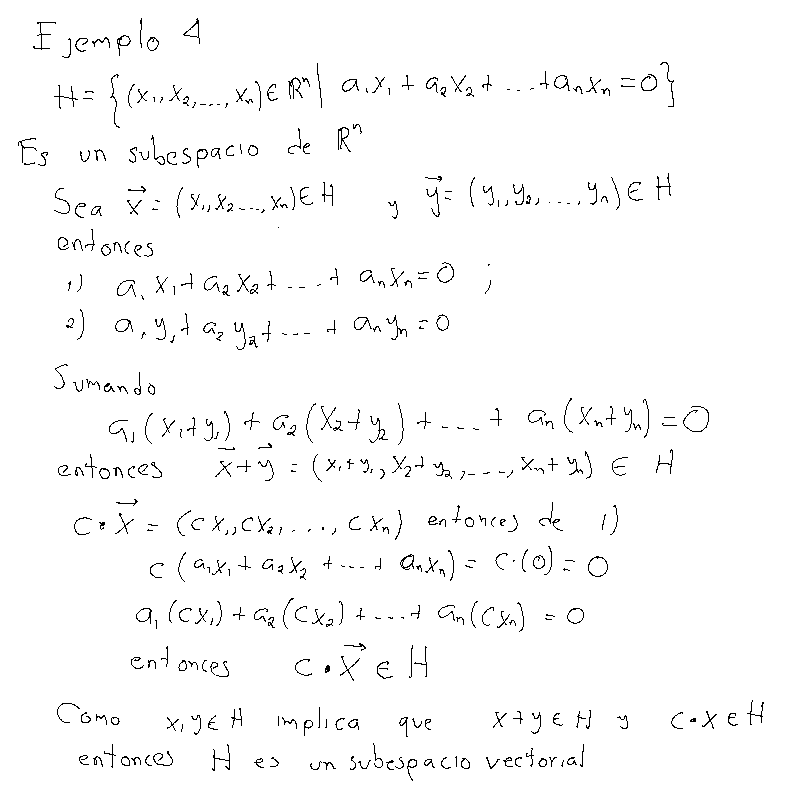 Ejemplo 4
H = { (x₁, x₂, ..., xₙ) ∈ ℝⁿ | a₁x₁ + a₂x₂ + ... + aₙxₙ = 0 }
Es un subespacio de ℝⁿ
Sea x⃗ = (x₁, x₂ ..., xₙ) ∈ H y y⃗ = (y₁, y₂, ..., yₙ) ∈ H
entonces
1) a₁x₁ + a₂x₂ + ... + aₙxₙ = 0 ;
2) a₁y₁ + a₂y₂ + ... + aₙyₙ = 0
Sumando
a₁(x₁+y₁) + a₂(x₂+y₂) + ... + aₙ(xₙ+yₙ) = 0
entonces x⃗+y⃗ = (x₁+y₁, x₂+y₂, ..., xₙ+yₙ) ∈ H
c•x⃗ = (cx₁, cx₂, ..., cxₙ) entonces de 1)
c(a₁x₁ + a₂x₂ + ... + aₙxₙ) = c·(0) = 0
a₁(cx₁) + a₂(cx₂) + ... + aₙ(cxₙ) = 0
entonces c•x⃗ ∈ H
Como x, y ∈ H implica que x+y ∈ H y c•x ∈ H
entonces H es un subespacio vectorial